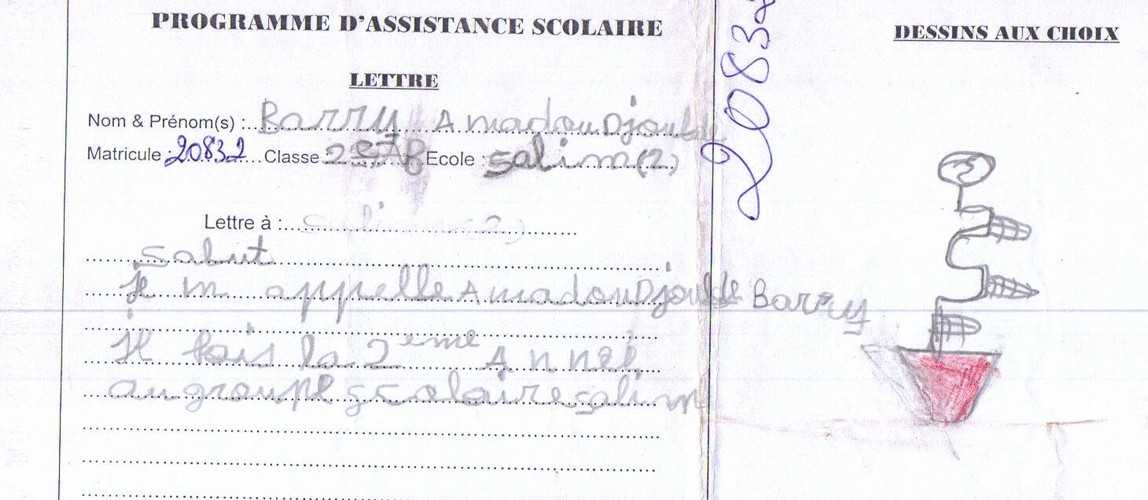 PROGRAMME D'ASSISTANCE SCOLAIRE
LETTRE
Nom & Prénom(s) : Barry Amadou Djoulde
Matricule : 20832 Classe Ecole : Salim (2)
Lettre à : Salim (2)
Salut
Je m appelle Amadou Djoulde Barry
Je fais la 2eme Anneé
au groupe scolaire salim
20832
DESSINS AUX CHOIX